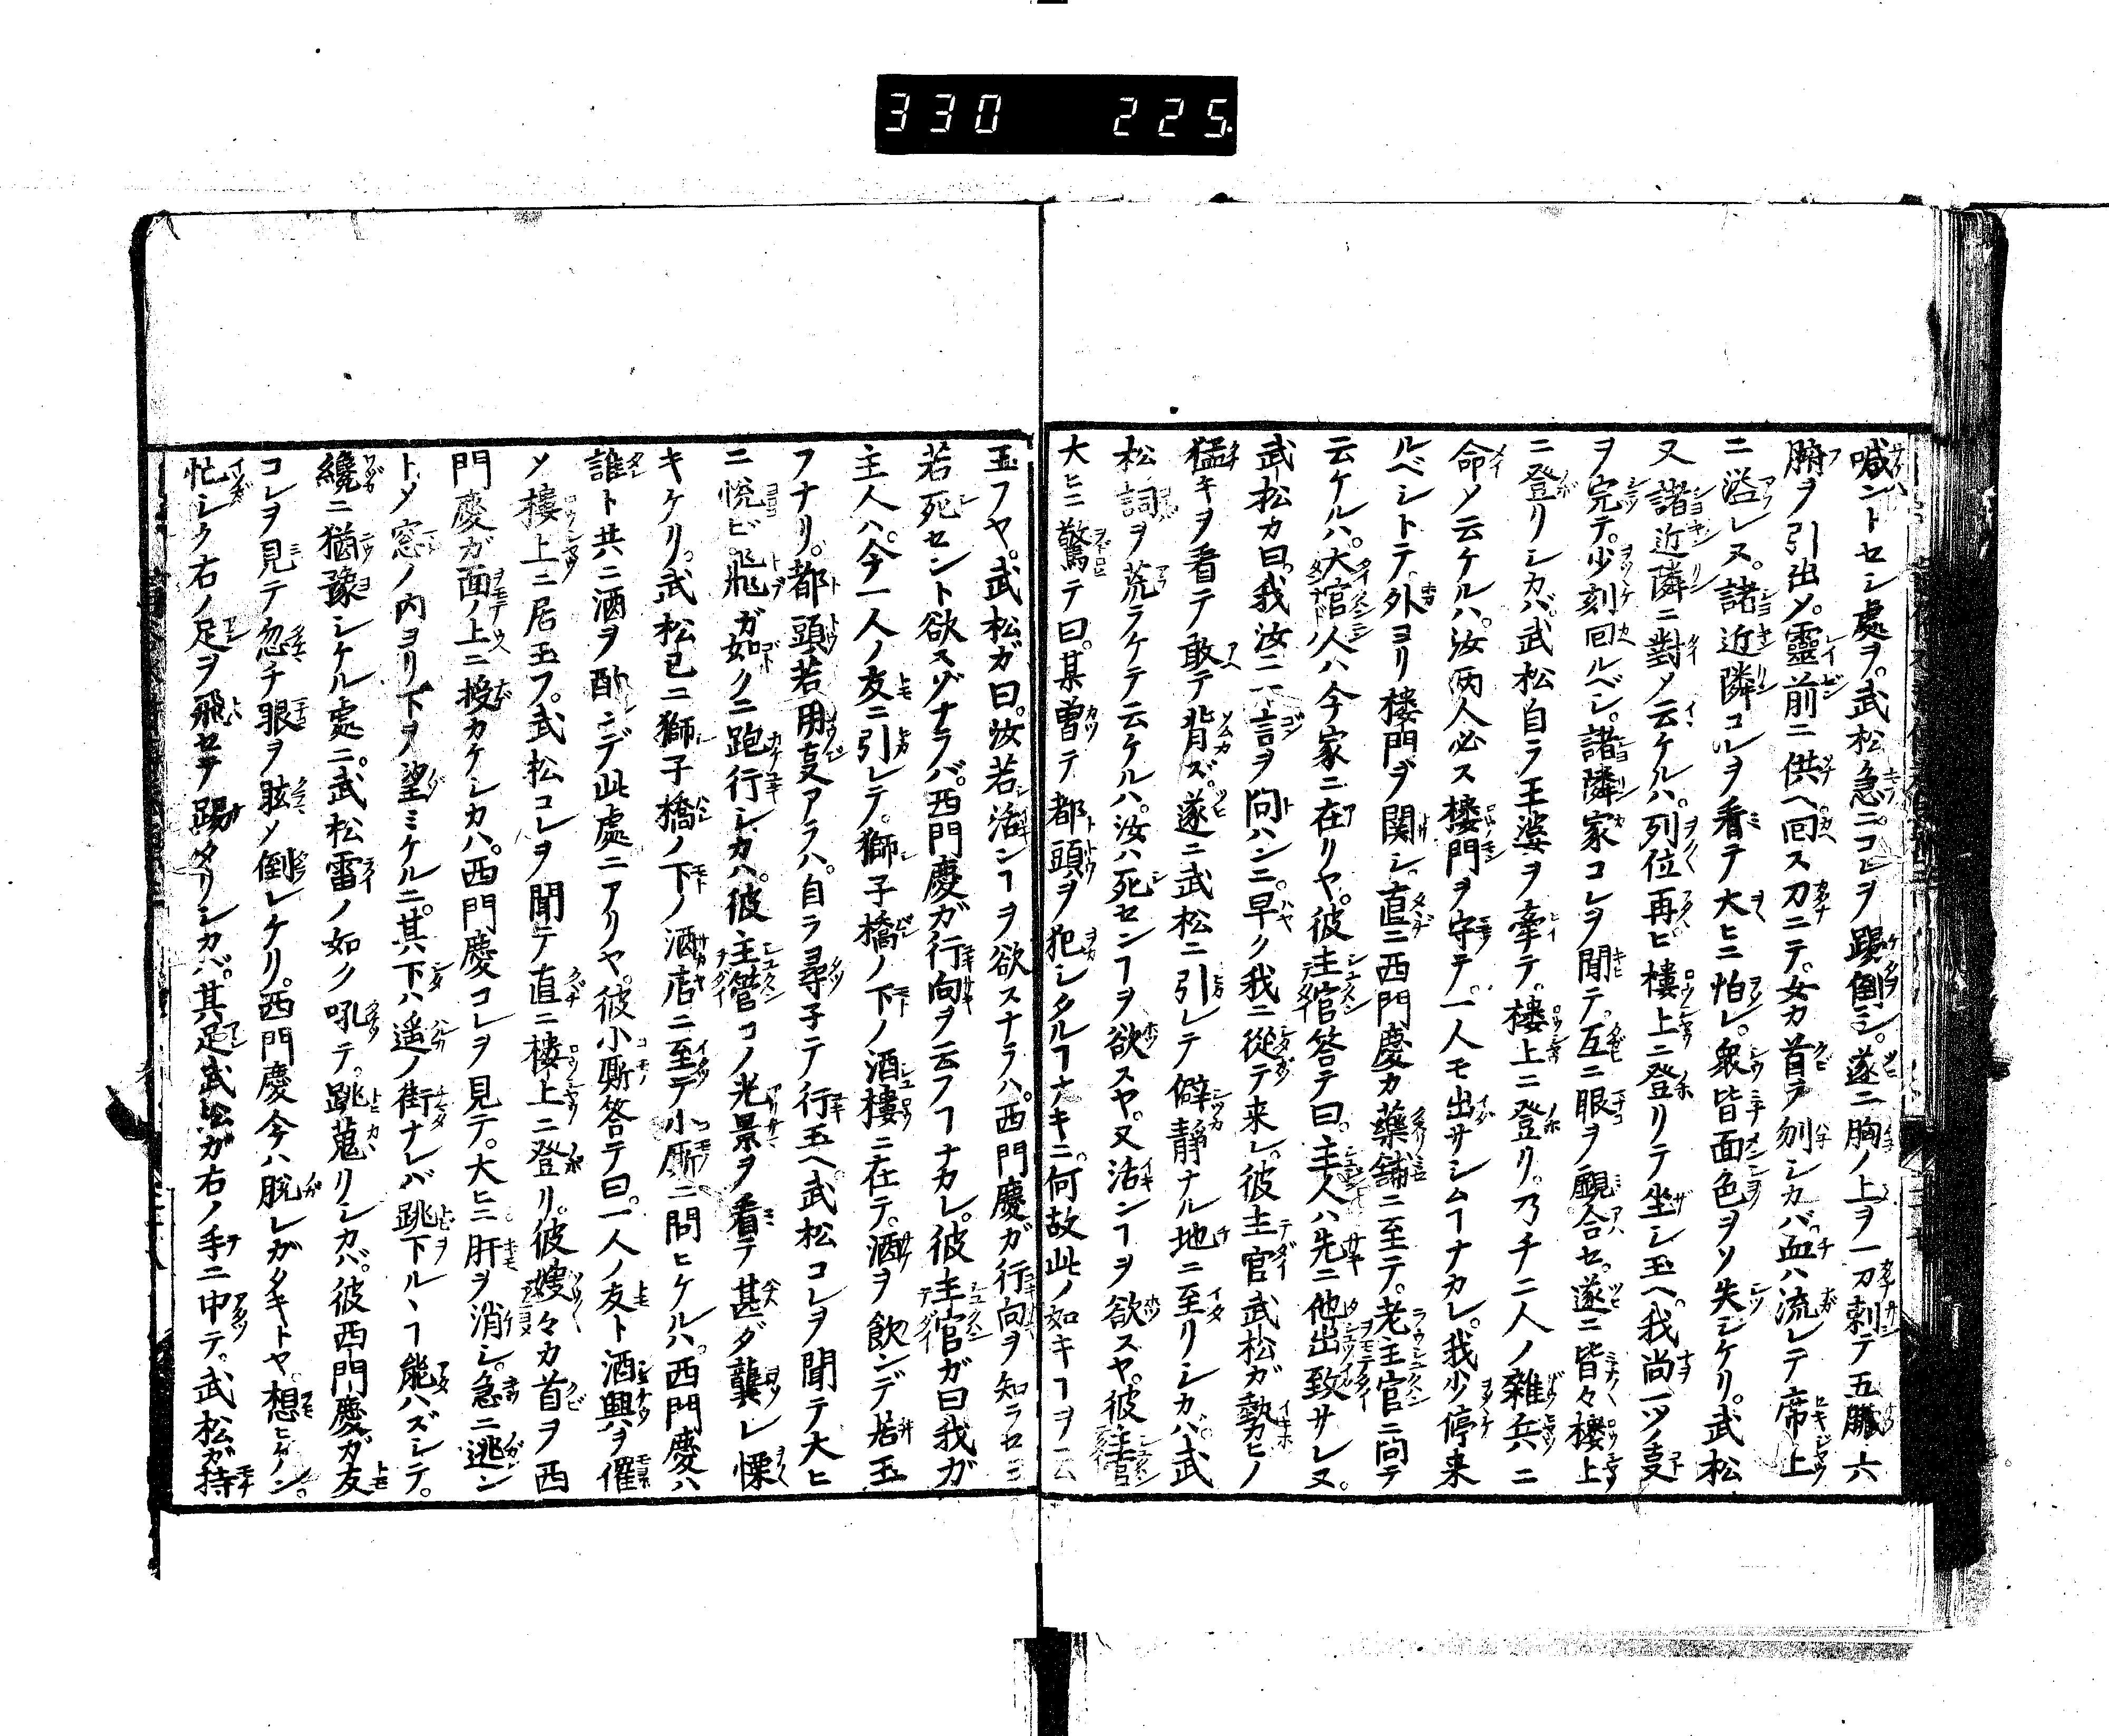 330 225.
喊ントセシ處ヲ。武松急ニコレヲ踢倒シ。遂ニ胸ノ上ヲ一刀刺テ五臟六
腑ヲ引出メ。靈前ニ供ヘ囘ス刀ニテ。女カ首ヲ刎シカバ。血ハ流レテ席上
ニ溢レヌ。諸近隣コレヲ看テ大ヒニ怕レ。衆皆面色ヲソ失ヒケリ。武松
又諸近隣ニ對メ云ケルハ。列位再ビ樓上ニ登リテ坐シ玉ヘ。我尚一ツノ㕝
ヲ完テ。少刻囘ルベシ。諸隣家コレヲ聞テ。互ニ眼ヲ覷合セ。遂ニ皆々樓上
ニ登リシカバ。武松自ラ王婆ヲ牽テ。樓上ニ登リ。乃チ二人ノ雜兵ニ
命メ云ケルハ。汝兩人必ス樓門ヲ守テ。一人モ出サシムヿナカレ。我少停来
ルベシトテ。外ヨリ楼門ヲ関シ。直ニ西門慶カ藥舗ニ至テ。老主官ニ向テ
云ケルハ。大官人ハ今家ニ在リヤ。彼主官答テ曰。主人ハ先ニ他出致サレヌ。
武松カ曰。我汝ニ一言ヲ問ハンニ。早ク我ニ從テ来レ。彼主官武松ガ勢ヒノ
猛キヲ看テ敢テ背ズ。遂ニ武松ニ引レテ僻靜ナル地ニ至リシカバ。武
松詞ヲ荒ラケテ云ケルハ。汝ハ死センヿヲ欲スヤ。又活ンヿヲ欲スヤ。彼主官
大ヒニ驚テ曰。某曽テ都頭ヲ犯シタルヿナキニ。何故此ノ如キヿヲ云
玉フヤ。武松ガ曰。汝若活ンヿヲ欲スナラハ。西門慶ガ行向ヲ知ラセヨ
若死セント欲スヅナラバ。西門慶ガ行向ヲ云フヿナカレ。彼主官ガ曰我ガ
主人ハ。今一人ノ友ニ引レテ。獅子橋ノ下ノ酒樓ニ在テ。酒ヲ飲ンデ居玉
フナリ。都頭若用㕝アラハ。自ラ尋子テ行玉ヘ武松コレヲ聞テ大ヒ
ニ悦ビ。飛ガ如クニ跑行シカハ。彼主管コノ光景ヲ看テ甚ダ龔レ慄
キケリ。武松已ニ獅子橋ノ下ノ酒店ニ至テ小厮ニ問ヒケルハ。西門慶ハ
誰ト共ニ酒ヲ酌ンデ此處ニアリヤ。彼小厮答テ曰。一人ノ友ト酒興ヲ催
メ樓上ニ居玉フ。武松コレヲ聞テ直ニ樓上ニ登リ。彼嫂々カ首ヲ西
門慶ガ面ノ上ニ投カケシカハ。西門慶コレヲ見テ。大ヒニ肝ヲ消シ。急ニ逃ン
トメ窓ノ内ヨリ下ヲ望ミケルニ。其下ハ遥ノ街ナレバ跳下ルヽヿ能ハズシテ。
纔ニ猶豫シケル處ニ。武松雷ノ如ク吼テ。跳蒐リシカバ。彼西門慶ガ友
コレヲ見テ忽チ眼ヲ眩メ倒レケリ。西門慶今ハ脱レガタキトヤ。想ヒケン。
忙シク右ノ足ヲ飛セテ踢タリシカバ。其足武松ガ右ノ手ニ中テ。武松ガ持